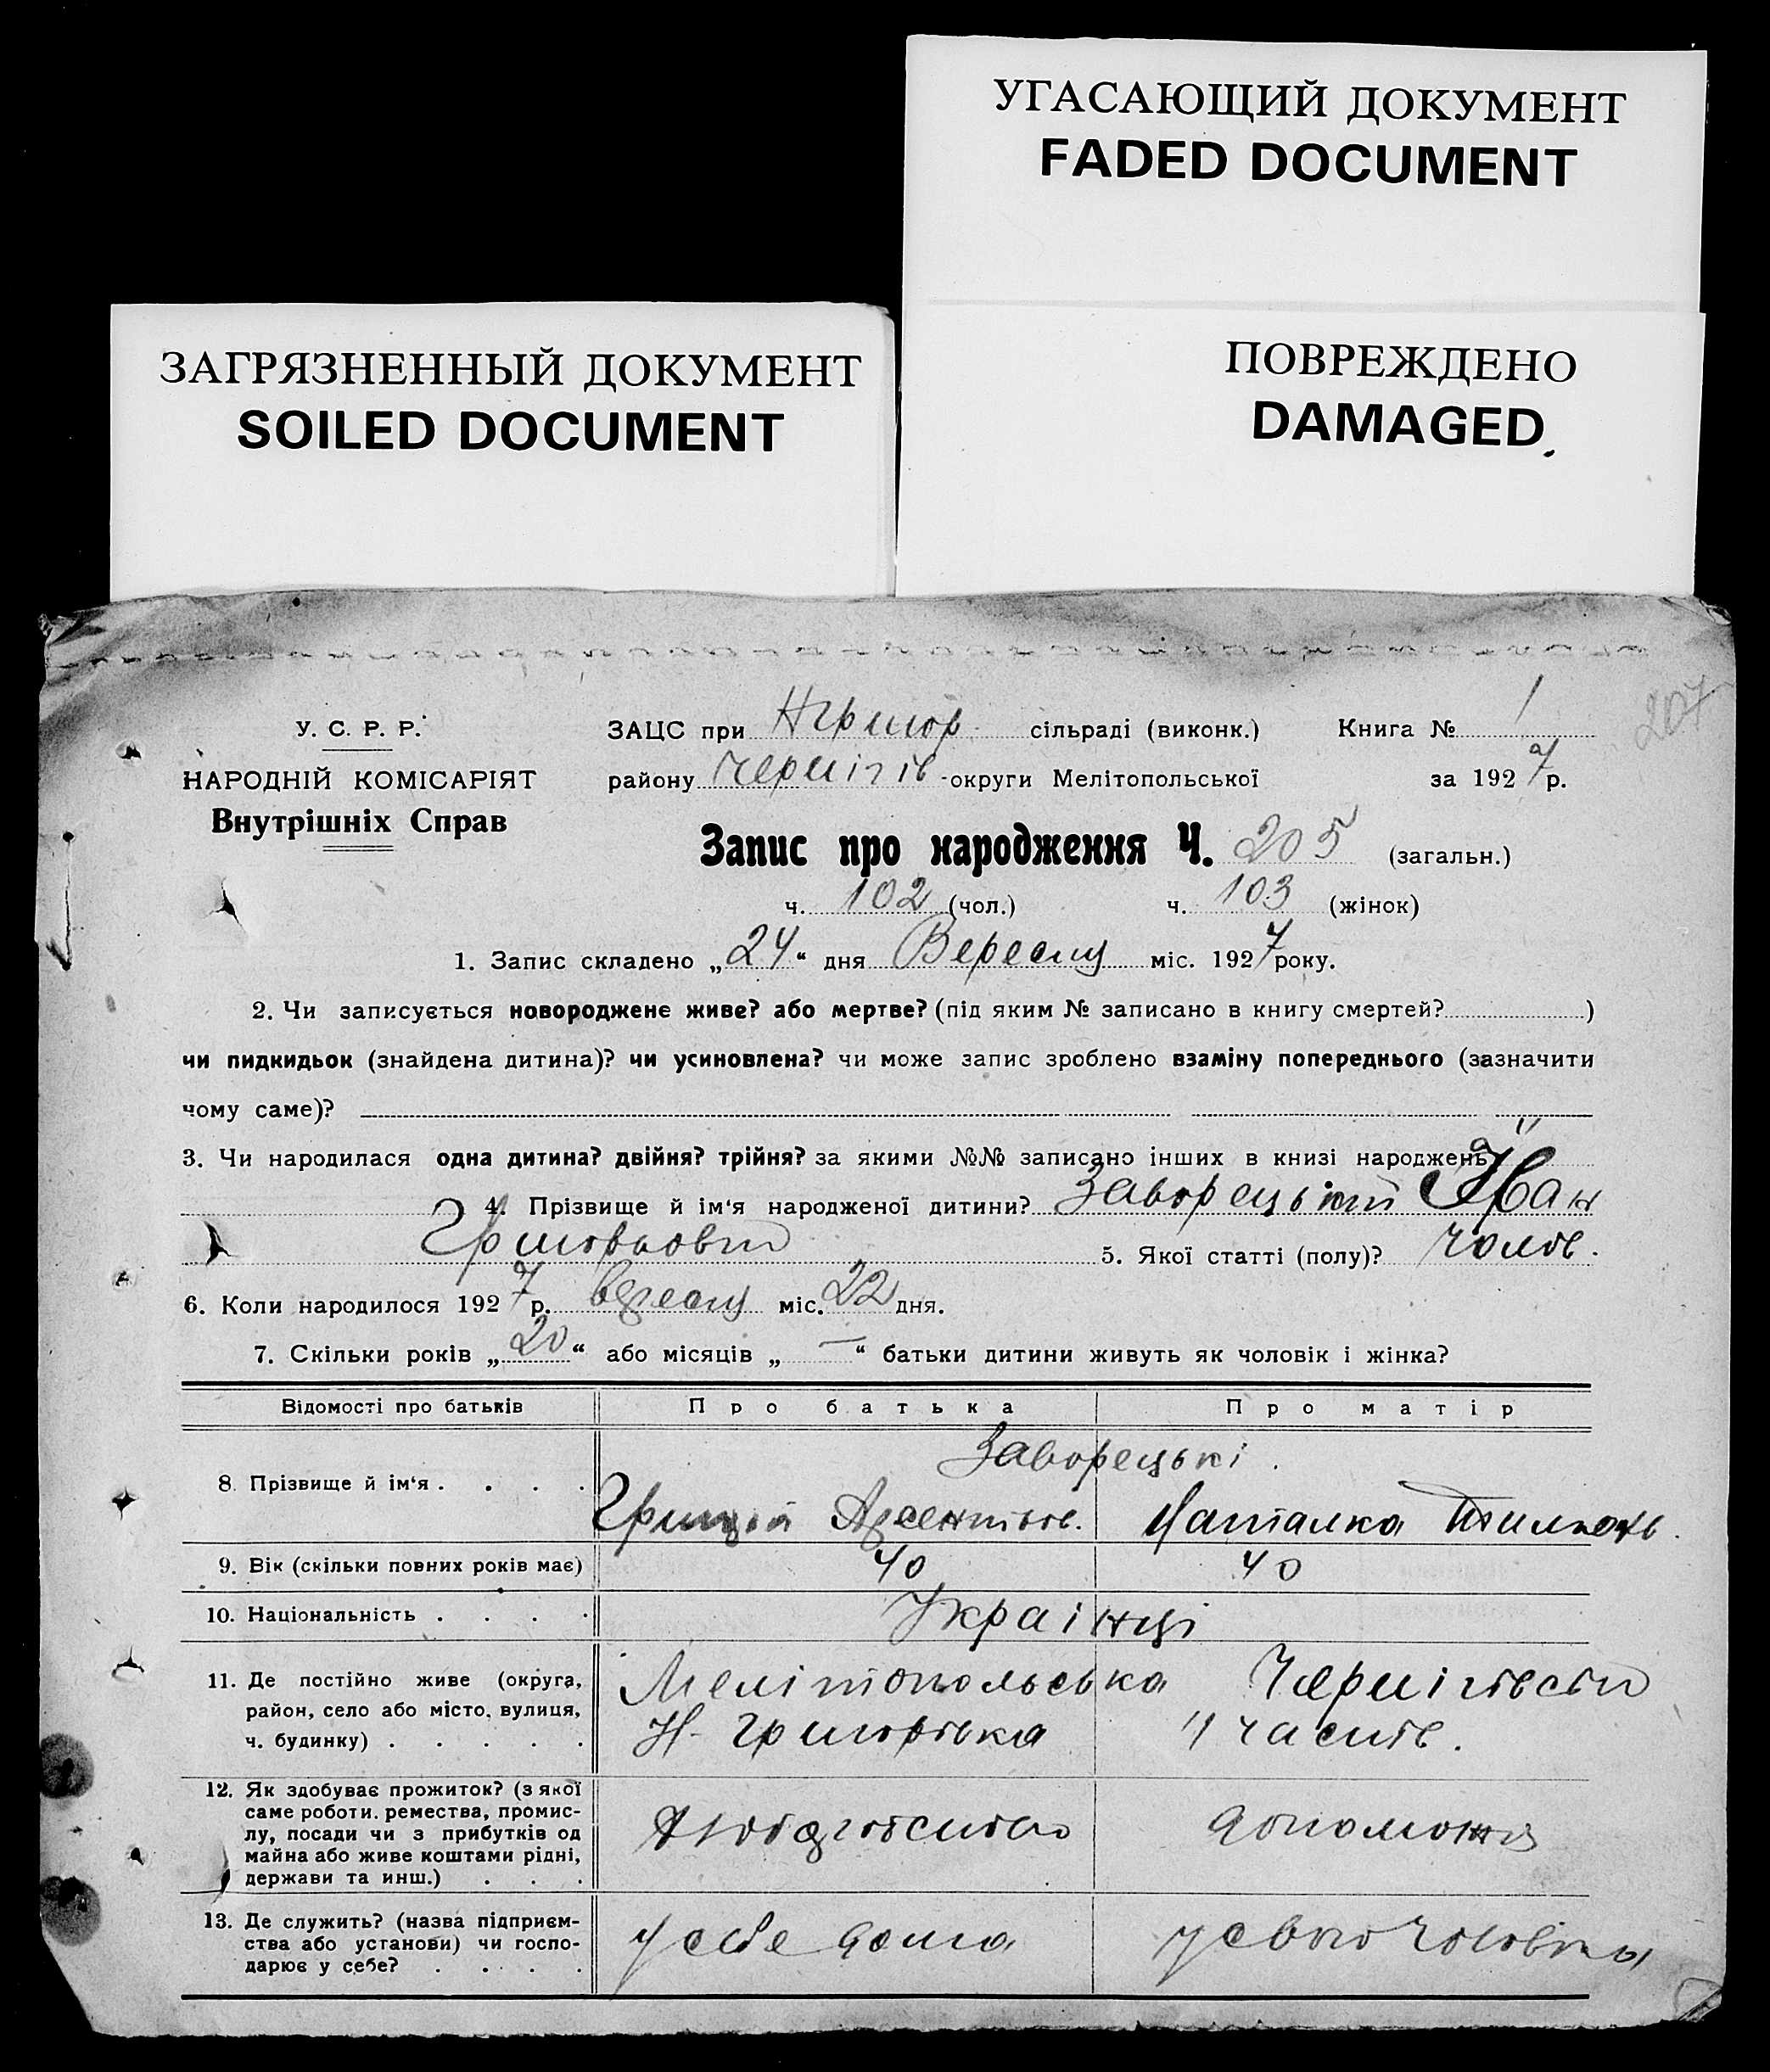 УГАСАЮЩИЙ ДОКУМЕНТ
FADED DOCUMENT
ЗАГРЯЗНЕННЫЙ ДОКУМЕНТ
SOILED DOCUMENT
ПОВРЕЖДЕНО
DAMAGED
207
У. С. Р. Р.
НАРОДНІЙ КОМІСАРІЯТ
Внутрішніх Справ
ЗАЦС при Нгригор сільраді (виконк.) Книга № 1
району Чернігів округи Мелітопольської за 1927 р.
Запис про народження Ч. 205 (загальн.)
ч. 102 (чол.) ч. 103 (жінок)
1. Запис складено „24“ дня Вересня міс. 1927 року.
2. Чи записується новороджене живе? або мертве? (під яким № записано в книгу смертей? )
чи пидкидьок (знайдена дитина)? чи усиновлена? чи може запис зроблено взаміну попереднього (зазначити
чому саме)?
3. Чи народилася одна дитина? двійня? трійня? за якими №№ записано інших в книзі народжень?
4. Прізвище й ім‘я народженої дитини? Заворецький Іван
5. Якої статті (полу)? чолов.
6. Коли народилося 1927 р. вересня міс. 22 дня.
7. Скільки років „20“ або місяців „—“ батьки дитини живуть як чоловік і жінка?
Відомості про батьків Про батька Про матір
Заворецькі.
8. Прізвище й ім‘я . . . . Грицій Арсентьов. Наталка
9. Вік (скільки повних років має) 40 40
10. Національність . . . . Українці
11. Де постійно живе (округа, Мелітопольська Чернігівськ
район, село або місто, вулиця, Н- Григорівка
ч. будинку) . . . . .
12. Як здобуває прожиток? (з якої
саме роботи, ремества, промис-
лу, посади чи з прибутків од допоможня
майна або живе коштами рідні,
держави та инш.) . . .
13. Де служить? (назва підприєм-
ства або установи) чи госпо- у себе дома у свого чоловіка
дарює у себе? . . . .